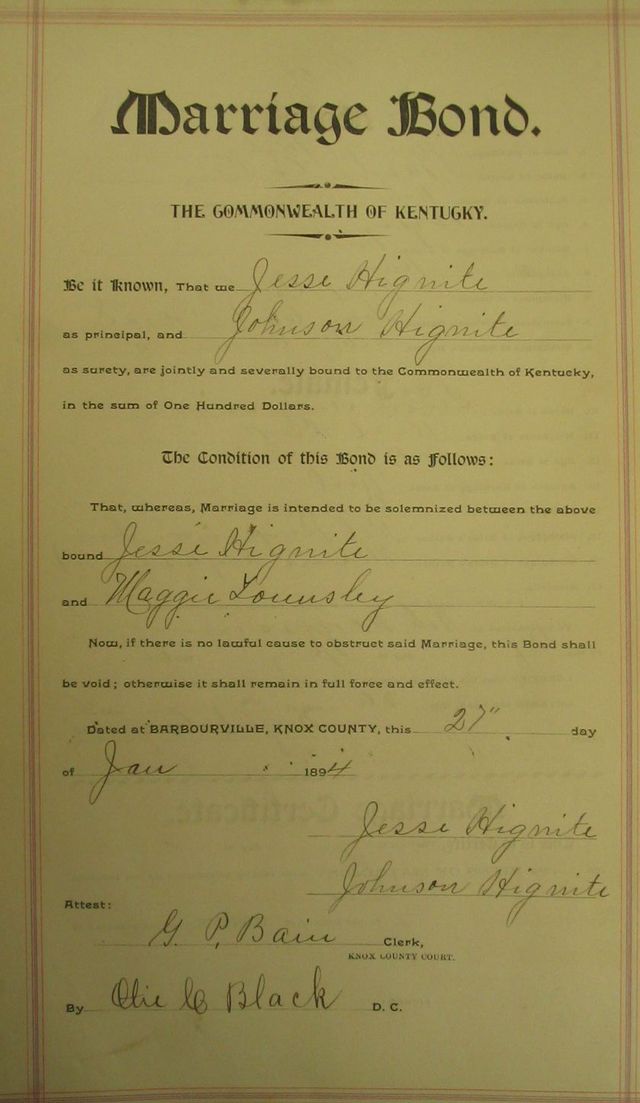 Marriage Bond.
THE COMMONWEALTH OF KENTUCKY.
Be it Known, That we Jesse Hignite
as principal, and Johnson Hignite
as surety, are jointly and severally bound to the Commonwealth of Kentucky,
in the sum of One Hundred Dollars.
The Condition of this Bond is as Follows:
That, whereas, Marriage is intended to be solemnized between the above
bound Jesse Hignite
and Maggie Lounsley
Now, if there is no lawful cause to obstruct said Marriage, this Bond shall
be void; otherwise it shall remain in full force and effect.
Dated at BARBOURVILLE, KNOX COUNTY, this 27" day
of Jan 1894
Jesse Hignite
Johnson Hignite
Attest:
G. P. Bain Clerk,
KNOX COUNTY COURT.
By Black D. C.